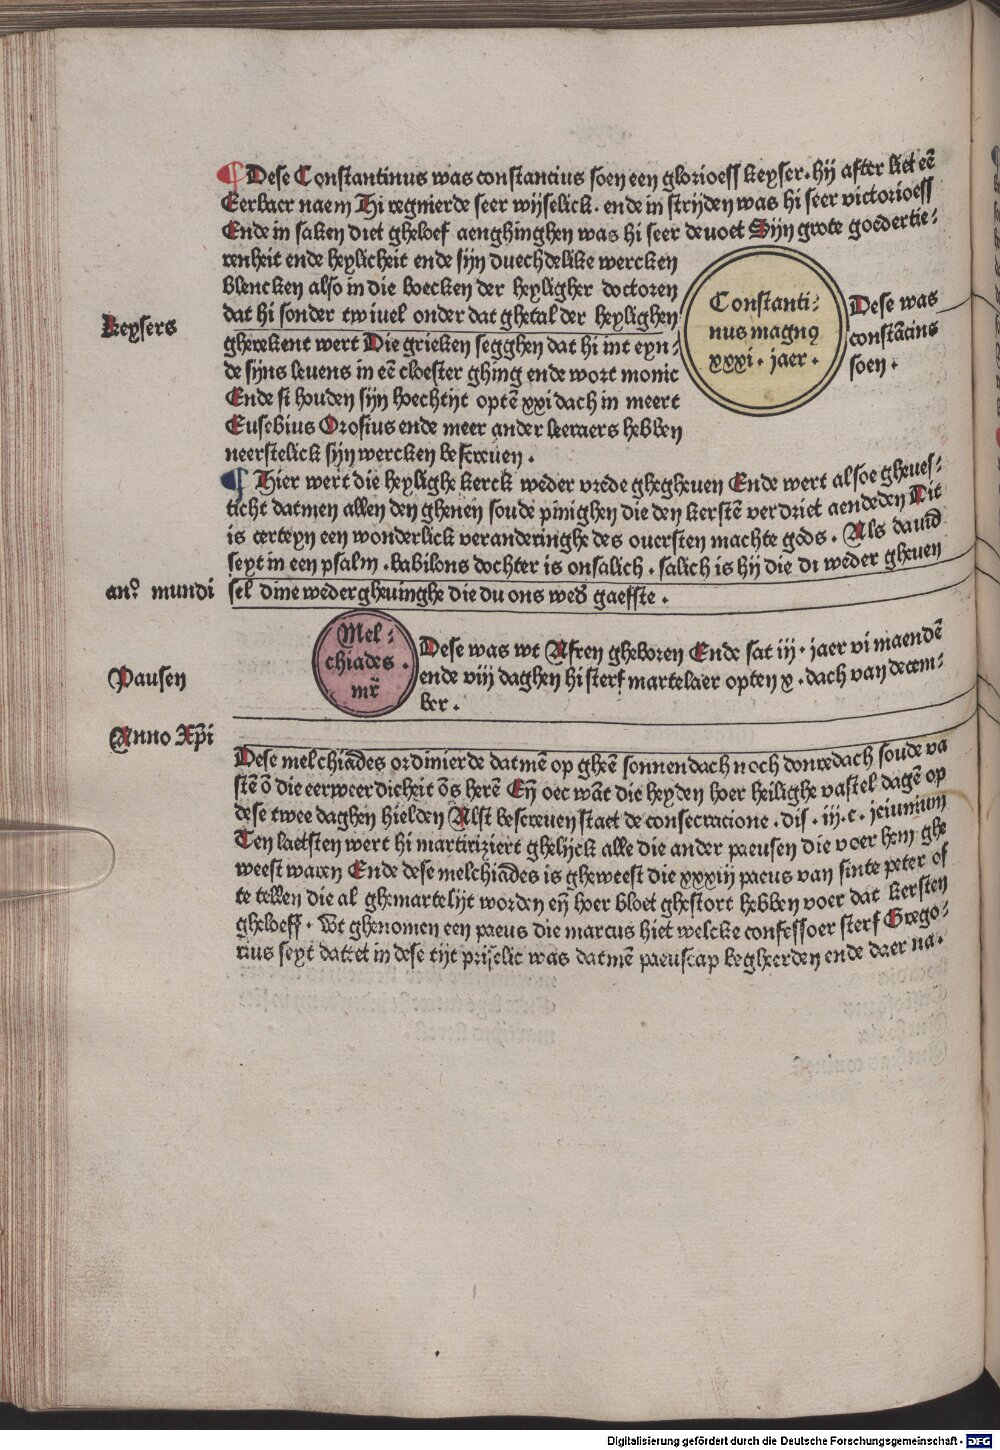 ¶ Dese Constantinus was constancius soen een glorioess keyser. hij after liet eē
Eerbaer naem Hi regnierde seer wijselick. ende in strijden was hi seer victorioess
Ende in saken diet gheloef aenghinghen was hi seer deuoet Sijn grote goedertie-
renheit ende heylicheit ende sijn duechdelike wercken
blencken also in die boecken der heyligher doctoren
dat hi sonder twiuel onder dat ghetal der heylighen
gherekent wert Die grieken segghen dat hi int eyn-
de sijns leuens in eē cloester ghing ende wort monic
Ende si houden sijn hoechtijt optē xxi dach in meert
Eusebius Orosius ende meer ander leeraers hebben
neerstelick sijn wercken bescreuen.
Constanti-
nus magnꝯ
xxxi. jaer.
Dese was
constācius
soen.
Keysers
¶ Hier wert die heylighe kerck weder vrede ghegheuen Ende wert alsoe gheues-
ticht datmen allen den ghenen soude pinighen die den kerstē verdriet aendeden Dit
is certeyn een wonderlick veranderinghe des ouersten machte gods. Als dauid
seyt in een psalm. babilons dochter is onsalich. salich is hij die di weder gheuen
anꝰ mundi
sel dine wedergheuinghe die du ons wed' gaeffte.
Mel-
chiades.
mr̄
Pausen
Dese was wt Afren gheboren Ende sat iij. jaer vi maendē
ende viij daghen hi sterf martelaer opten x. dach van decem-
ber.
Anno Xp̄i
Dese melchiades ordinierde datmē op gheē sonnendach noch donredach soude va
stē ō die eerweerdicheit ōs herē Eñ oec wāt die heyden hoer heilighe vastel dagē op
dese twee daghen hielden Alst bescreuen staet de consecracione. dis. iij. c. jeiunium
Ten laetsten wert hi martiriziert ghelijck alle die ander paeusen die voer hem ghe
weest waren Ende dese melchiādes is gheweest die xxxiij paeus van sinte peter of
te tellen die al ghemartelijt worden eñ hoer bloet ghestort hebben voer dat kersten
gheloeff. Wt ghenomen een paeus die marcus hiet welcke confessoer sterf Grego-
rius seyt dattet in dese tijt prijselic was datmē paeuscap begheerden ende daer na.
Digitalisierung gefördert durch die Deutsche Forschungsgemeinschaft - DFG